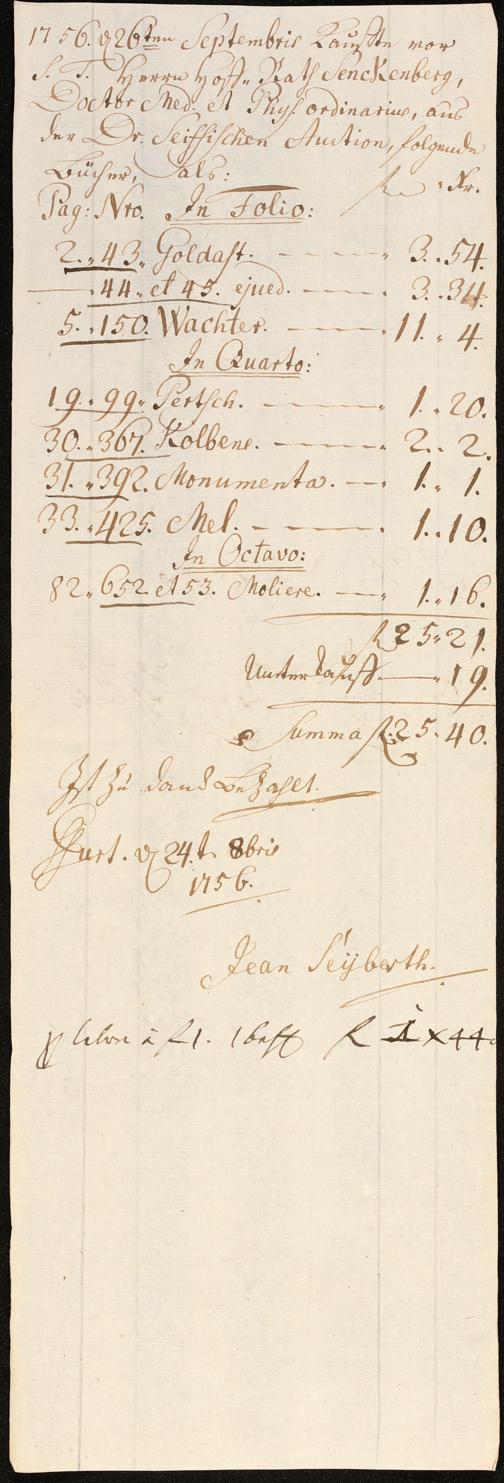 1756. d 26ten Septembris Kauffte vor
S. T. Herrn Hoff-Rath Senckenberg,
Doctor Med. et Phys. ordinarius, aus
der Dr. Seiffischen Auction, folgende
Bücher, als: fl. Xr.
Pag: Nro. In Folio:
2. 43. Goldast. — 3. 54.
— 44. et 45. ejusd. — 3. 34.
5. 150. Wachter. — 11. 4.
In Quarto:
19. 99. Pertsch. — 1. 20.
30. 367. Kolbens. — 2. 2.
31. 392. Monumenta. — 1. 1.
33. 425. Mel. — 1. 10.
In Octavo:
82. 652. et 53. Moliere. — 1. 16.
fl 25. 21.
Unterkauff — 19.
Summa fl. 25. 40.
Ist zu danck bezahlt.
Ffurt. d 24.t. 8bris
1756.
Jean Seÿberth.
à fl 1. fl 1 x 44